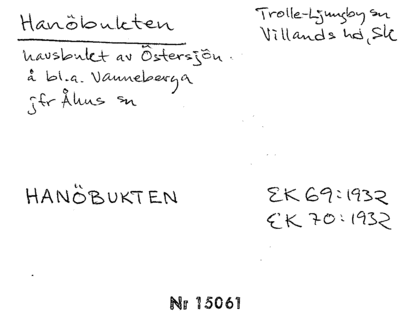 Hanöbukten
Trolle-Ljungby sn
Villands hd, Sk
havsbukt av Östersjön.
å bl.a. Vanneberga
jfr Åhus sn
HANÖBUKTEN
EK 69:1932
EK 70:1932
Nr 15061